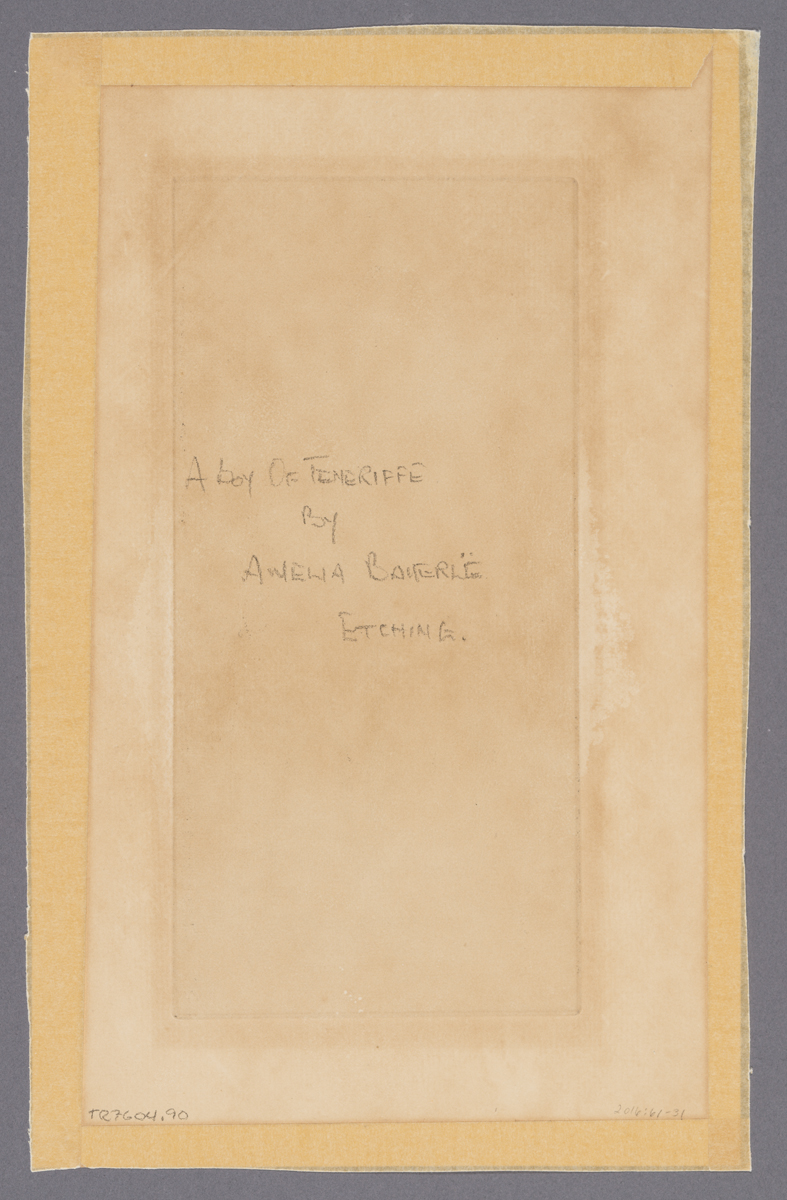 A Boy Of TENERIFFE
By
AMELIA BAUERLË
ETCHING.
TR7604.90
2016:61-31